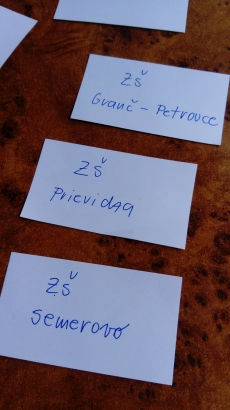 ZŠ
Gvanč - Petrovce
ZŠ
Prievidza
ZŠ
Semerovo